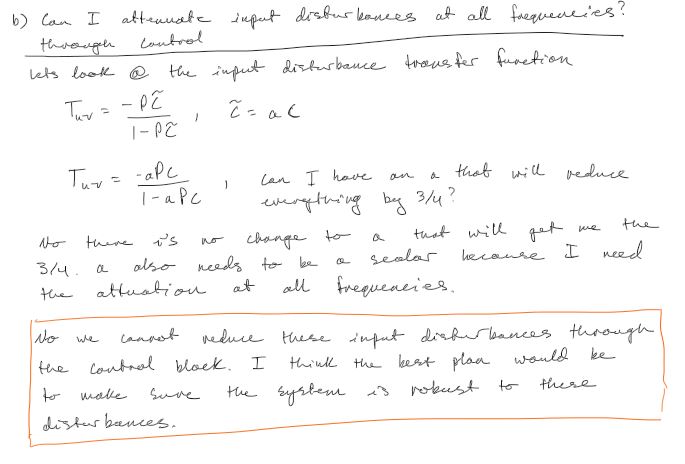 b) Can I attenuate input disturbances at all frequencies?
through control
Lets look @ the input disturbance transfer function
Tuv = -PC̃ / 1-PC̃ , C̃ = aC
Tuv = -aPC / 1-aPC , can I have an a that will reduce
everything by 3/4?
No there is no change to a that will get me the
3/4. a also needs to be a scalar because I need
the attuation at all frequencies.
No we cannot reduce these input disturbances through
the control block. I think the best plan would be
to make sure the system is robust to these
disturbances.